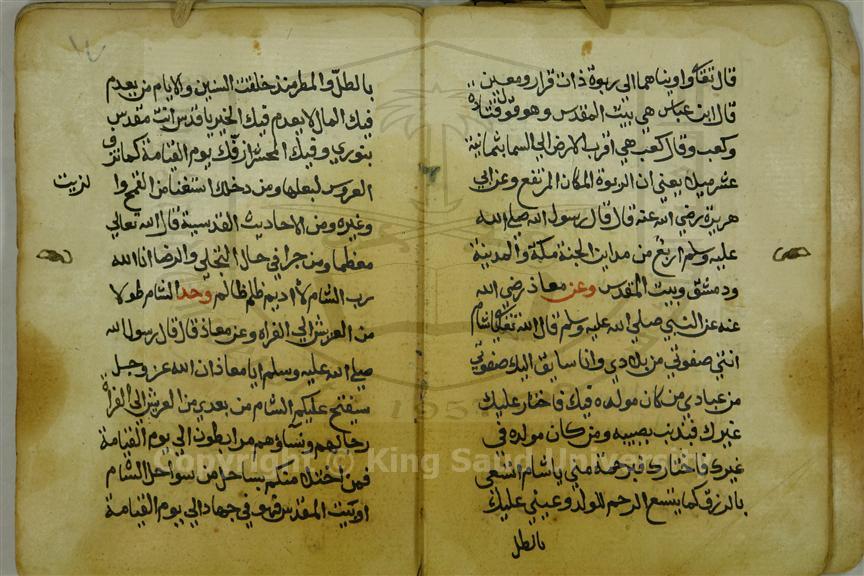 قال تعالى واويناهما الى ربوة ذات قرار ومعين
قال ابن عباس هي بيت المقدس وهو قول قتادة
وكعب وقال كعب هي اقرب الارض الى السما بثمانية
عشر ميلا يعني ان الربوة المكان المرتفع وعن ابي
هريرة رضي الله عنه قال قال رسول الله صلى الله
عليه وسلم اربع من مداين الجنة مكة والمدينة
ودمشق وبيت المقدس وعن معاذ رضي الله
عنه عن النبي صلى الله عليه وسلم قال الله تعالى ياشام
انتي صفوتي من بلادي وانا سايق اليك صفوتي
من عبادي من كان مولده فيك فاختار عليك
غيرك فبذنب يصيبه ومن كان مولده في
غيرك فاختارك فبرحمة مني ياشام اتسعي
بالرزق كما يتسع الرحم للولد وعيني عليك
بالطل
بالطل والمطر منذ خلقت السنين والايام من يعدم
فيك المال لا يعدم فيك الخير ياقدس انت مقدس
بنوري وفيك المحشر ازفك يوم القيامة كما تزف
العروس لبعلها ومن دخلك استغنا من القمح وا
لزيت
وغيره ومن الاحاديث القدسية قال الله تعالى
معظما ومن جرا في حال التجلي والرضا انا الله
رب الشام لا اديم ظلم ظالم وحد الشام طولا
من العرش الى الفراه وعن معاذ قال قال رسول الله
صلى الله عليه وسلم ايا معاذ ان الله عز وجل
سيفتح عليكم الشام من بعدي من العريش الى الفراة
رجالهم ونساؤهم مرابطون الى يوم القيامة
فمن احتل منكم بساحل من سواحل الشام
او بيت المقدس فهو في جهاد الى يوم القيامة
1957
Copyright © King Saud University